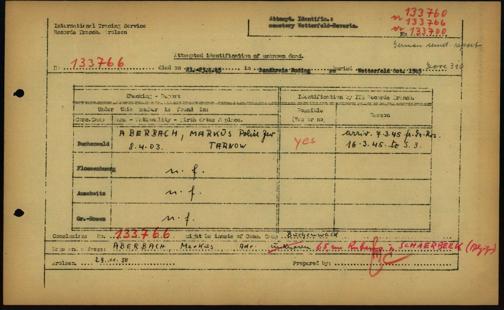 International Tracing Service
Records Branch, Arolsen
Attempt. Identific.:
cemetery Wetterfeld-Bavaria.
133760
133766
133780
Grave 310
Attempted identification of unknown dead.
No 133766 died on 21.-23.4.45 in Landkreis Roding buried Wetterfeld Oct. 1945
Checking - Report
Under this number is found in:
Conc. Camp Name - Nationality - Birth date & place.
Identification by ITS Records Branch.
Possible
(Yes or no)
Reason
Buchenwald
ABERBACH, MARKUS Pole Jew
8.4.03. TARNOW
yes
arriv. 7.3.45 fr. Gr. Ros.
16.3.45 to S.3.
Flossenbürg n.f.
Auschwitz n.f.
Gr.-Rosen n.f.
Conclusion: No. 133766 might be inmate of Conc. Camp Buchenwald
ABERBACH Markus
SCHAERBEEK
Arolsen
Prepared by: